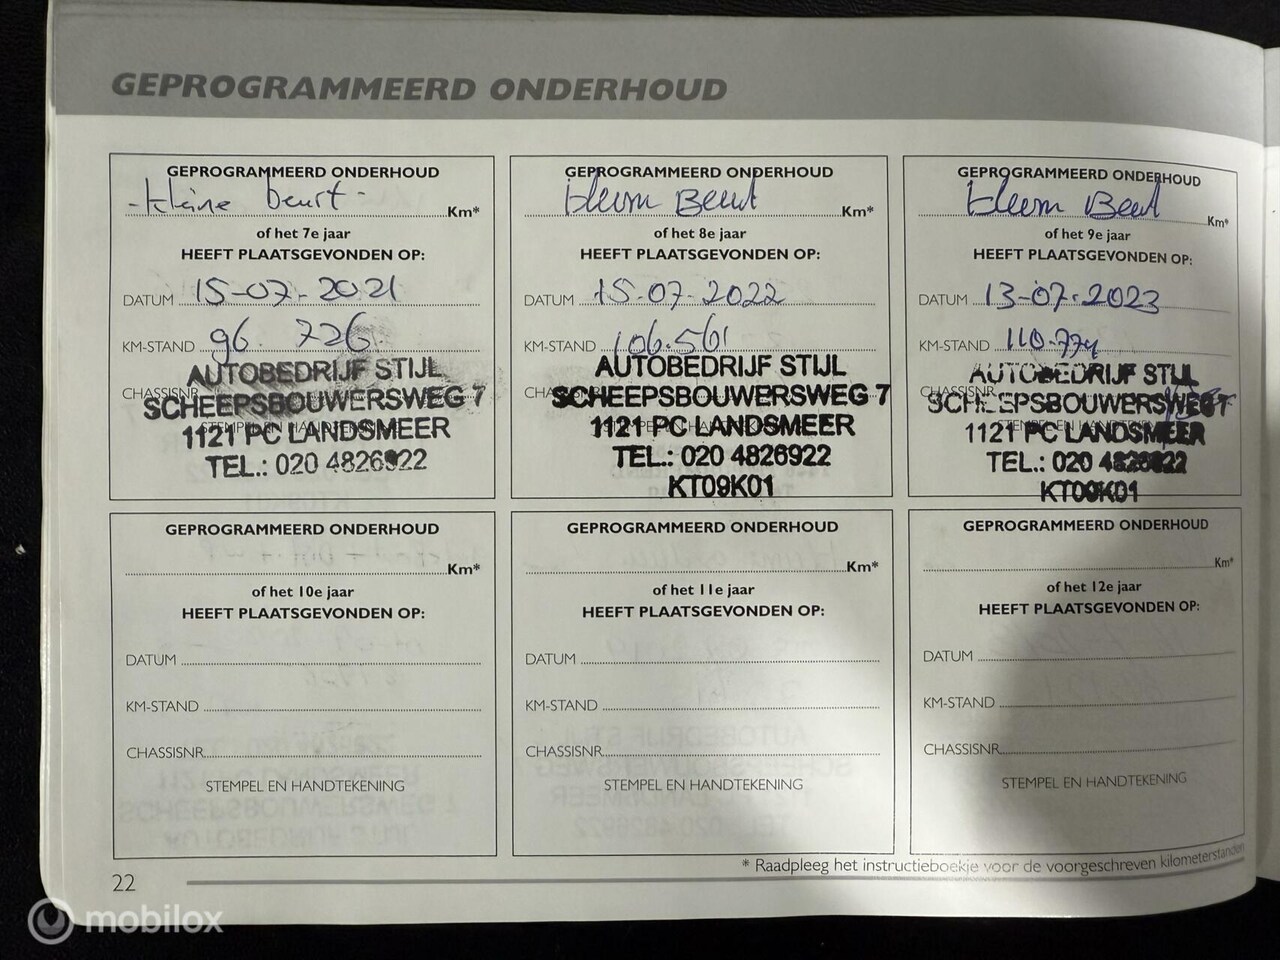 GEPROGRAMMEERD ONDERHOUD
GEPROGRAMMEERD ONDERHOUD
-kleine beurt-
Km*
of het 7e jaar
HEEFT PLAATSGEVONDEN OP:
DATUM 15-07-2021
KM-STAND 96.726
CHASSISNR
AUTOBEDRIJF STIJL
SCHEEPSBOUWERSWEG 7
STEMPEL EN HANDTEKENING
1121 PC LANDSMEER
TEL.: 020 4826922
GEPROGRAMMEERD ONDERHOUD
Beurt
Km*
of het 8e jaar
HEEFT PLAATSGEVONDEN OP:
DATUM 15-07-2022
KM-STAND 106.561
AUTOBEDRIJF STIJL
SCHEEPSBOUWERSWEG 7
1121 PC LANDSMEER
TEL.: 020 4826922
KT09K01
GEPROGRAMMEERD ONDERHOUD
Km*
of het 9e jaar
HEEFT PLAATSGEVONDEN OP:
DATUM 13-07-2023
KM-STAND 110.774
CHASSISNR
AUTOBEDRIJF STIJL
1121 PC LANDSMEER
TEL.: 020 4826922
GEPROGRAMMEERD ONDERHOUD
Km*
of het 10e jaar
HEEFT PLAATSGEVONDEN OP:
DATUM
KM-STAND
CHASSISNR
STEMPEL EN HANDTEKENING
GEPROGRAMMEERD ONDERHOUD
Km*
of het 11e jaar
HEEFT PLAATSGEVONDEN OP:
DATUM
KM-STAND
CHASSISNR
STEMPEL EN HANDTEKENING
GEPROGRAMMEERD ONDERHOUD
Km*
of het 12e jaar
HEEFT PLAATSGEVONDEN OP:
DATUM
KM-STAND
CHASSISNR
STEMPEL EN HANDTEKENING
* Raadpleeg het instructieboekje voor de voorgeschreven kilometerstanden
22
mobilox